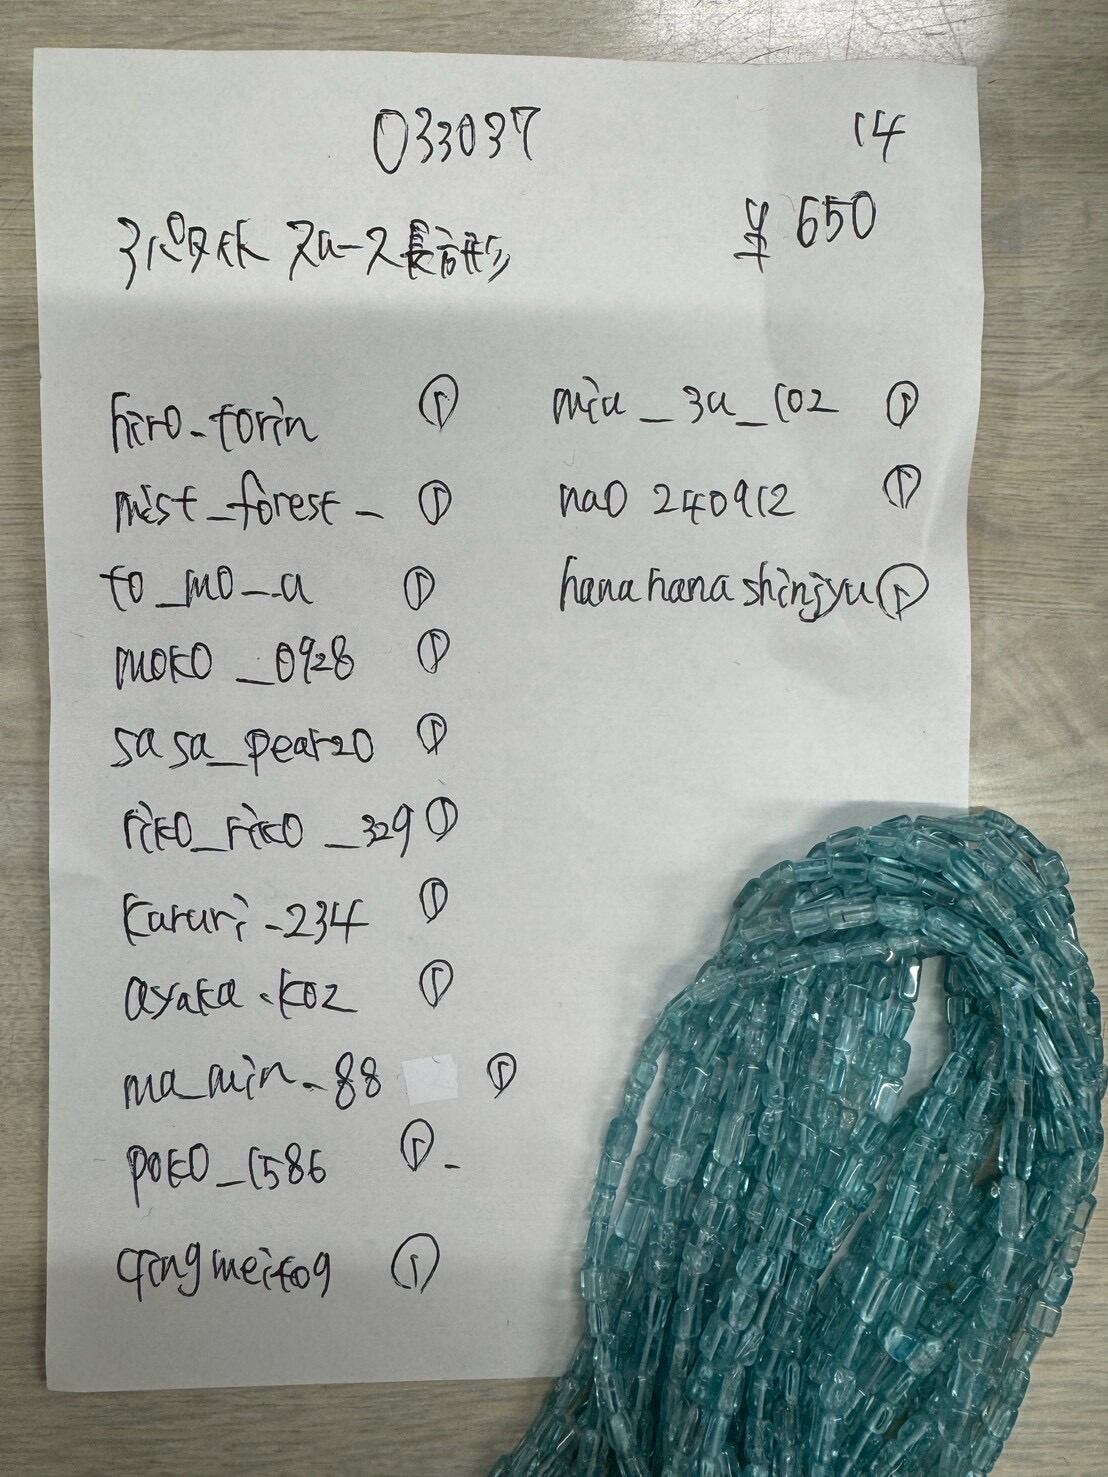 033037
14
¥650
アパタイト スロース長方形
hiro_torin ①
mist_forest_ ①
to_mo__a ①
moko_0928 ①
sasa_pear20 ①
riko_riko_329 ①
Karuri_234 ①
ayaka.k02 ①
ma_min_88 ①
poko_1586 ①
qingmeito9 ①
miu_3u_102 ①
nao240912 ①
hanahanashinjyu ①